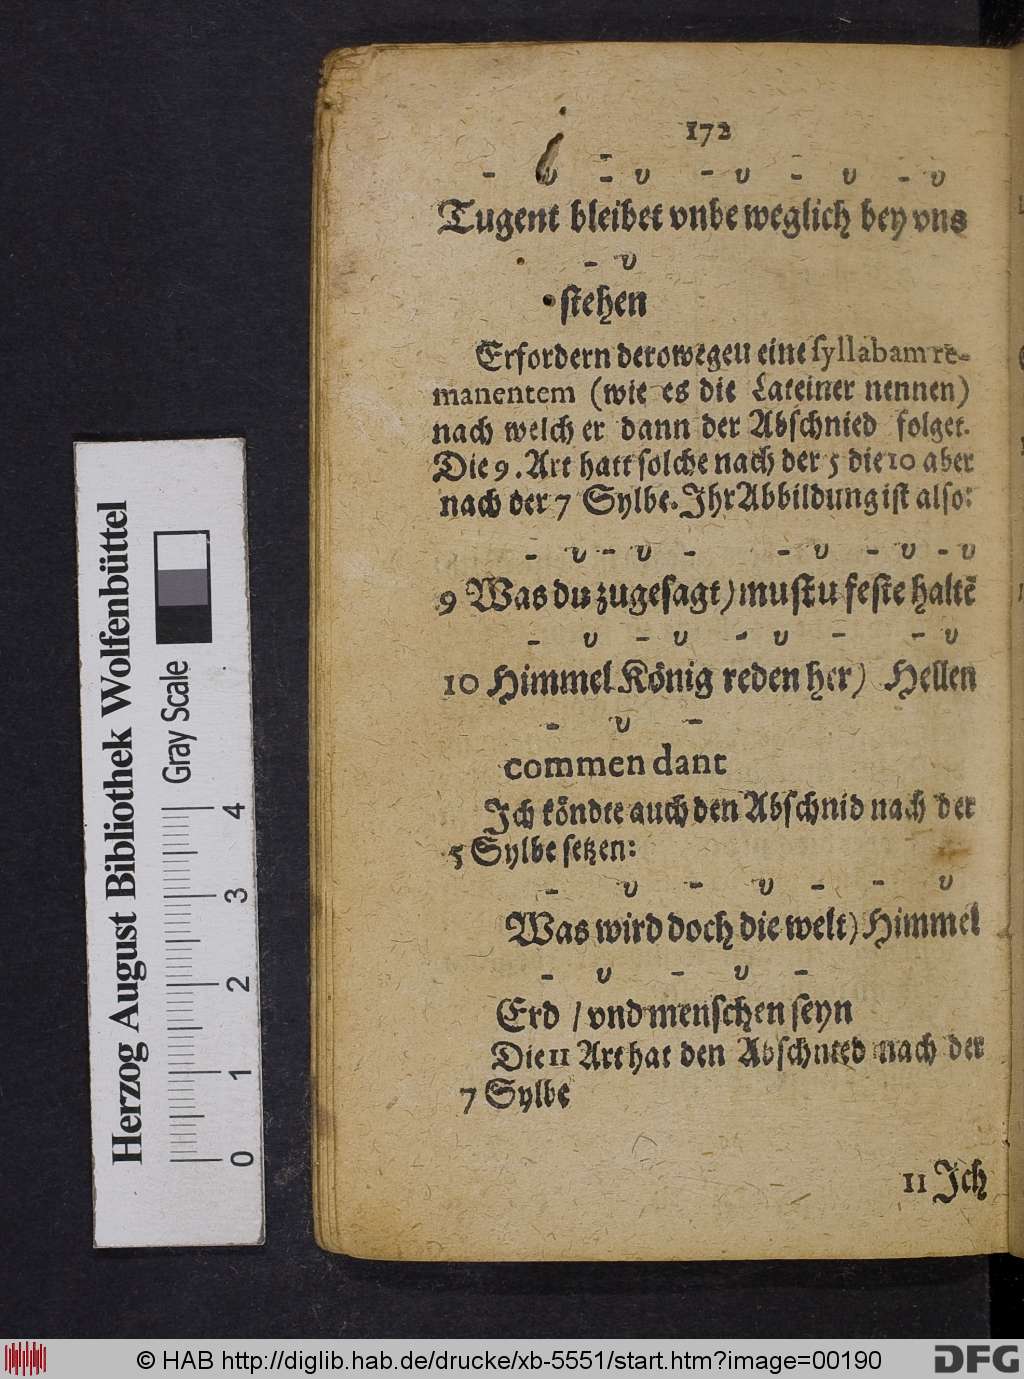 172
- υ - υ - υ - υ - υ
Tugent bleibet vnbe weglich bey vns
- υ
stehen
Erfordern derowegen eine syllabam re-
manentem (wie es die Lateiner nennen)
nach welch er dann der Abschnied folget.
Die 9. Art hatt solche nach der 5 die 10 aber
nach der 7 Sylbe. Ihr Abbildung ist also:
- υ - υ - - υ - υ - υ
9 Was du zugesagt) mustu feste haltē
- υ - υ - υ - - υ
10 Himmel König reden her) Hellen
- υ -
commen dant
Ich köndte auch den Abschnid nach der
5 Sylbe setzen:
- υ - υ - - υ
Was wird doch die welt) Himmel
- υ - υ -
Erd / vnd menschen seyn
Die 11 Art hat den Abschnied nach der
7 Sylbe
11 Ich
Herzog August Bibliothek Wolfenbüttel
Gray Scale
0 1 2 3 4
© HAB http://diglib.hab.de/drucke/xb-5551/start.htm?image=00190
DFG